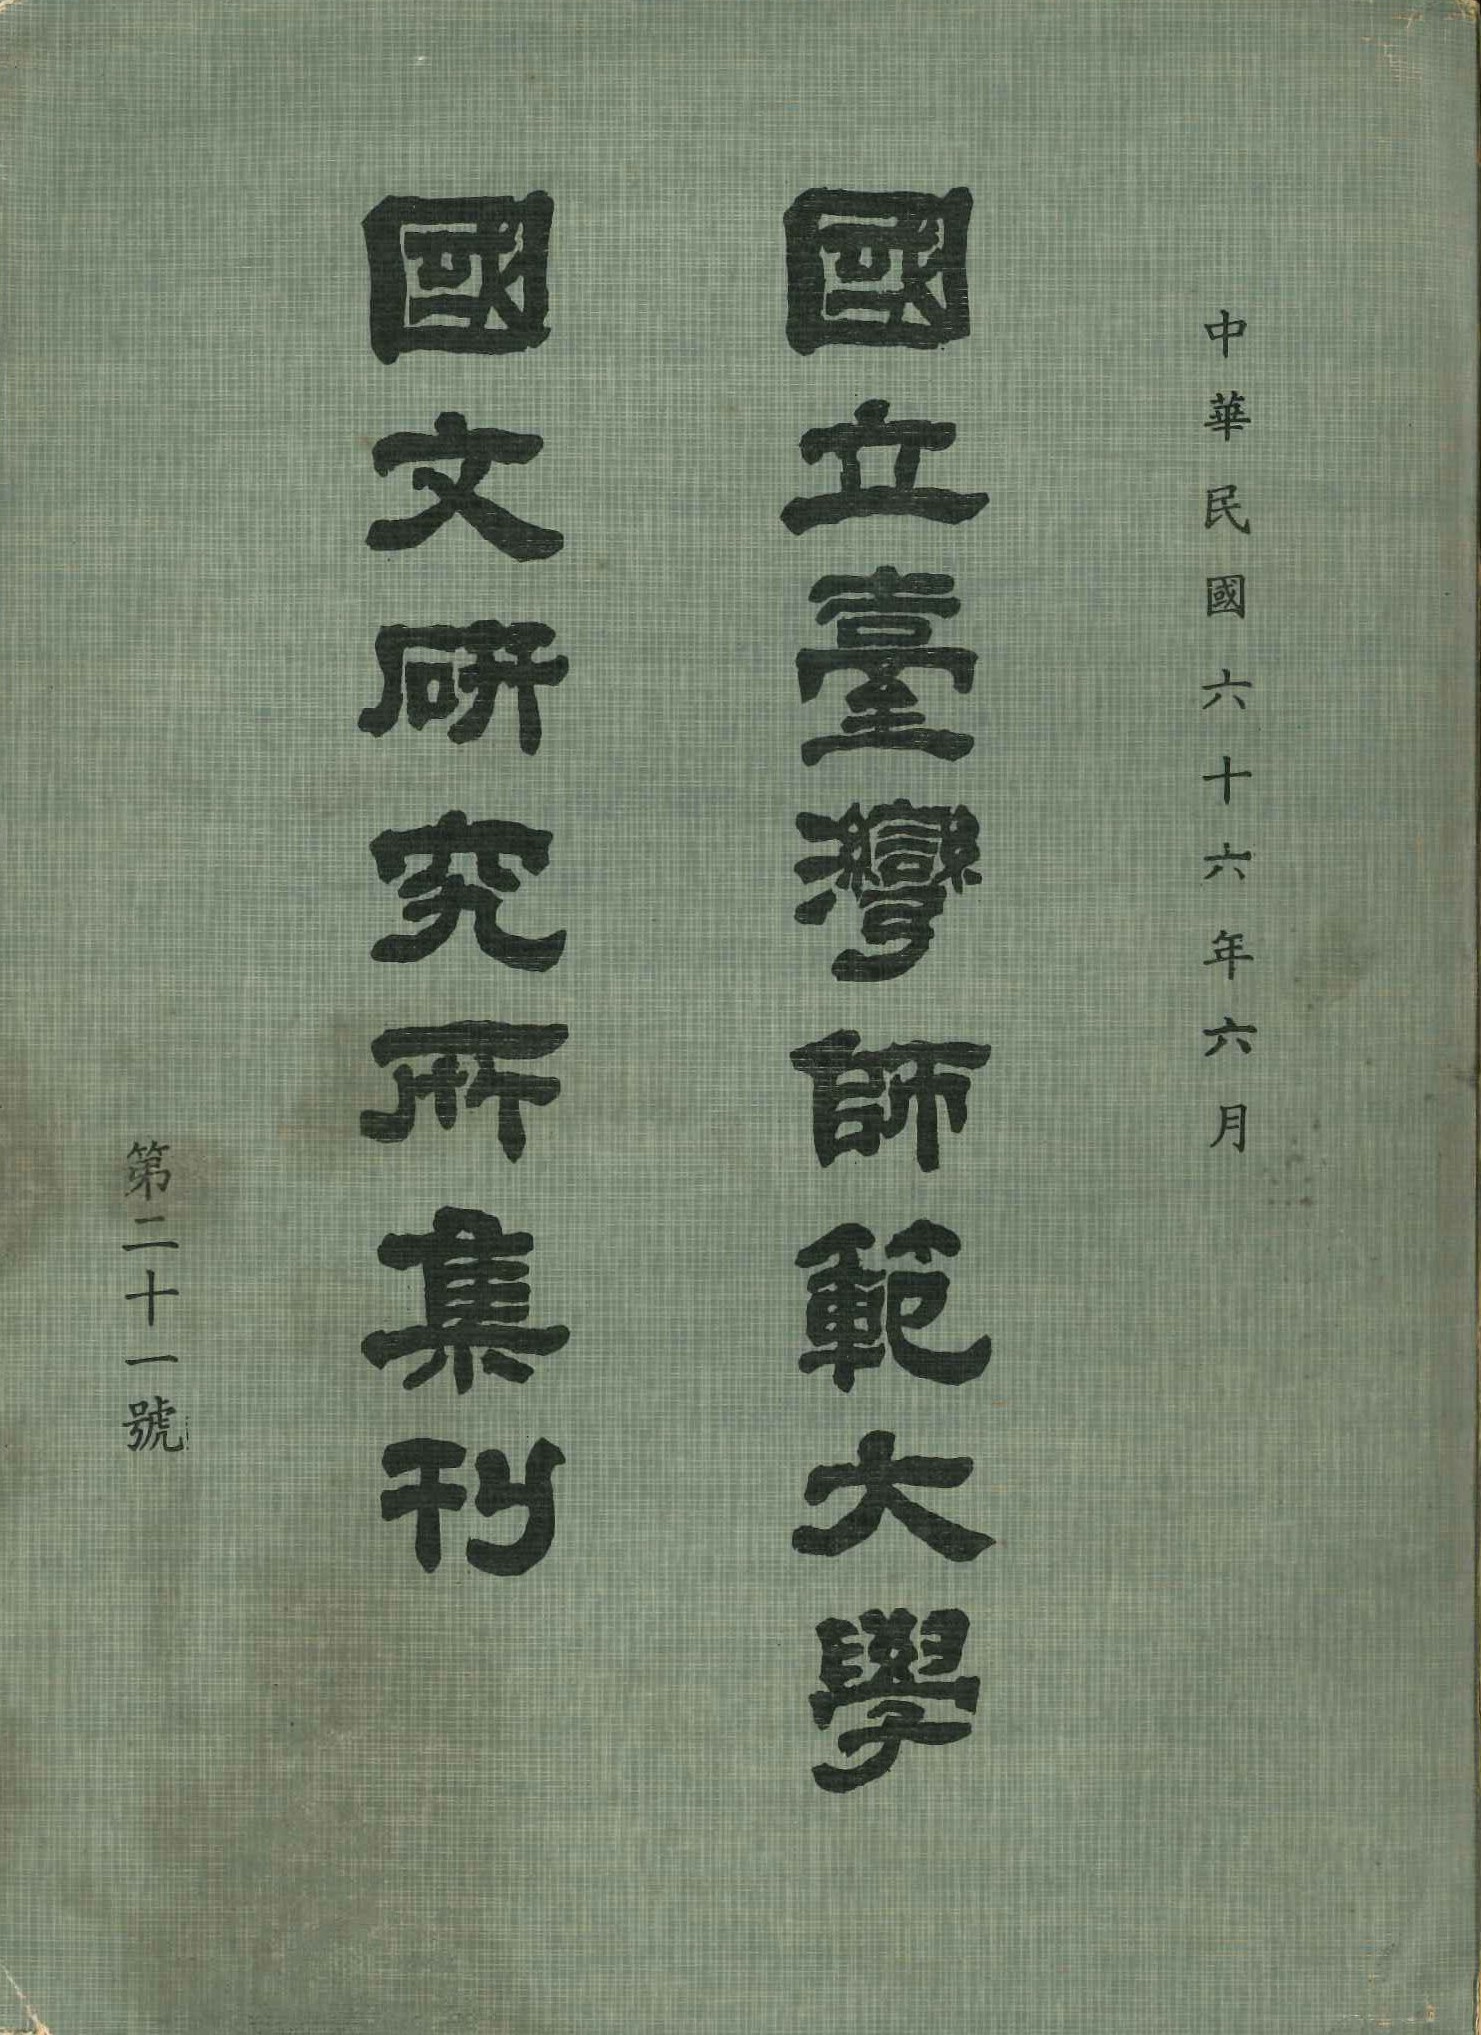 中華民國六十六年六月
國立臺灣師範大學
國文研究所集刊
第二十一號